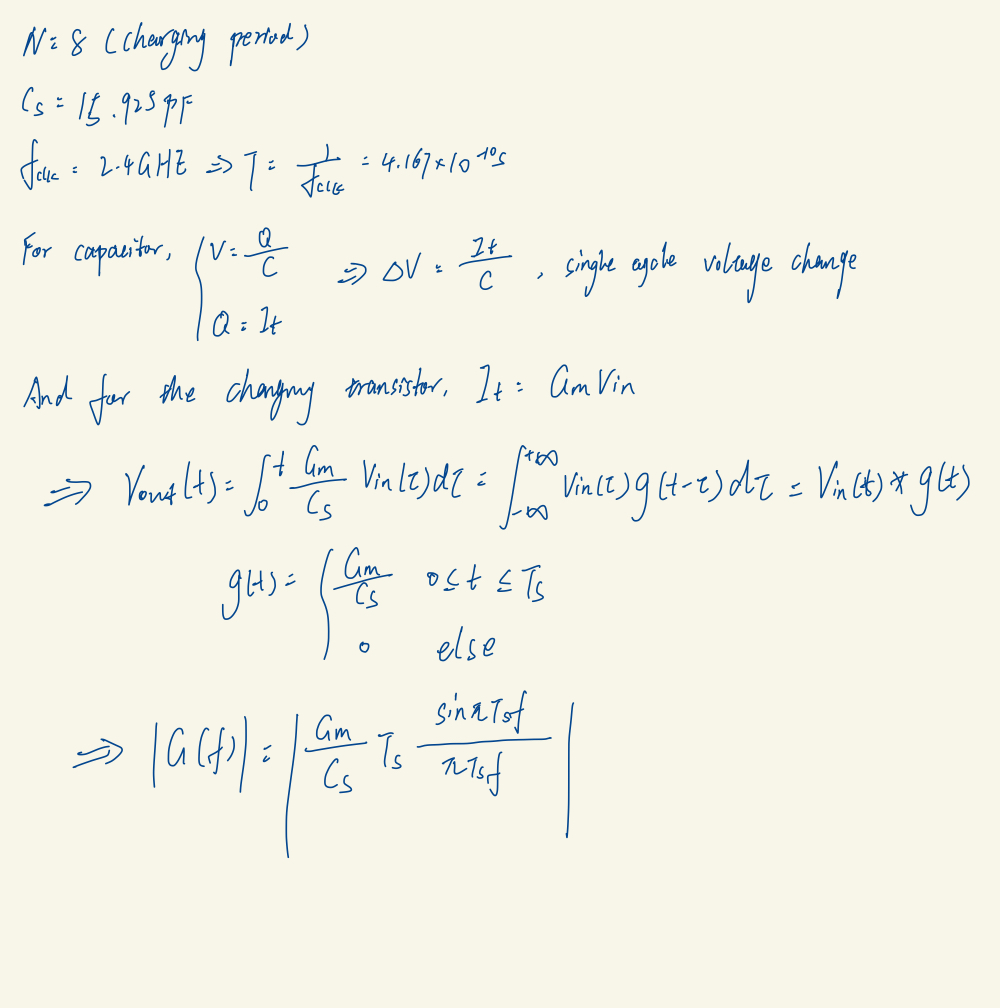 N = 8 (charging period)
Cs = 15.925 pF
fclk = 2.4GHZ ⇒ T = 1/fclk = 4.167×10^-10 s
For capacitor, { V = Q/C ⇒ ΔV = It/C , single cycle voltage change
Q = It
And for the charging transistor, It = Gm Vin
⇒ Vout(t) = ∫_0^t Gm/Cs Vin(τ)dτ = ∫_-∞^+∞ Vin(τ)g(t-τ)dτ = Vin(t) * g(t)
g(t) = { Gm/Cs 0≤t≤Ts
0 else
⇒ |G(f)| = | Gm/Cs Ts sinπTsf/πTsf |